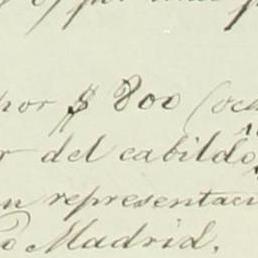 por $ 800 (och
r del cabildo
n representaci
o Madrid,